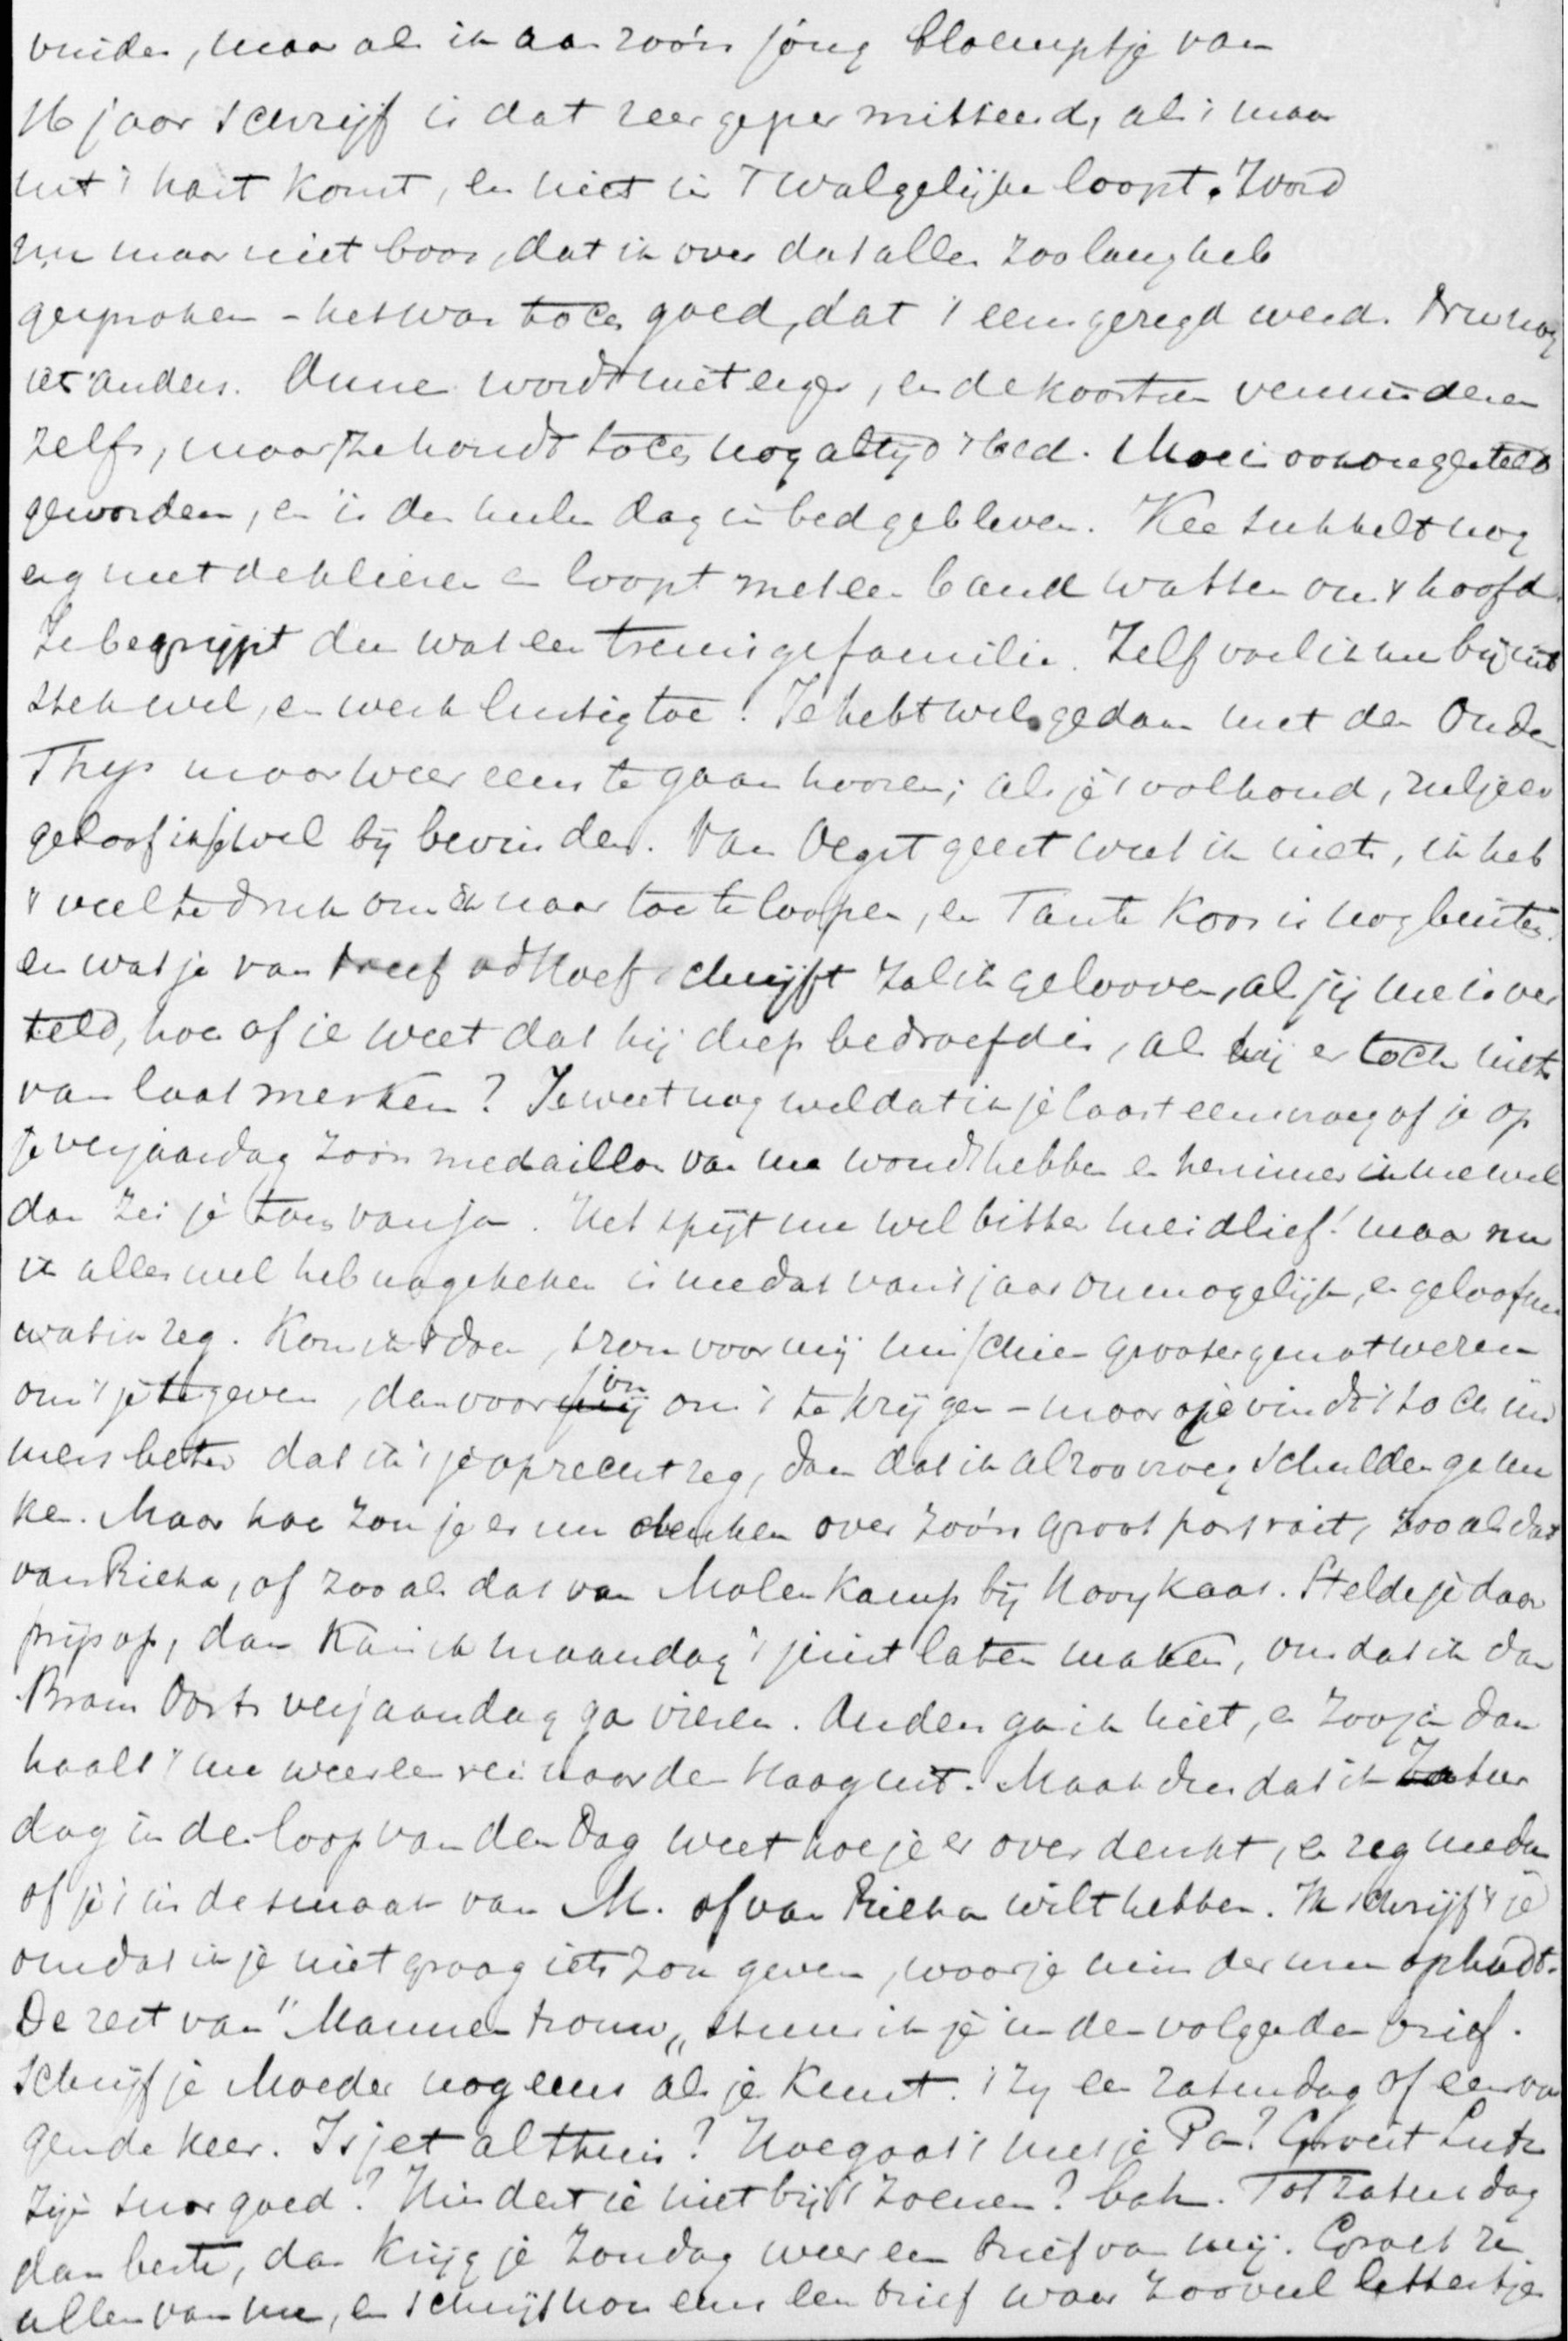 vinden, maar als ik aan zoo'n jong bloempje van
16 jaar schrijf is dat zeer gepermitteerd, als 't maar
uit 't hart komt, en niet in 't walgelijke loopt. Word
nu maar niet boos, dat ik over dat alles zoo lang heb
gesproken - het was toch goed, dat 't eens gezegd werd. Dus nog
iets anders. Anne wordt niet erger, en de koortsen verminderen
zelfs, maar ze houdt toch nog altijd 't bed. Moe is ook ongesteld
geworden, en is den heelen dag in bed gebleven. Kee sukkelt nog
erg met de klieren en loopt met een band watten om 't hoofd.
Je begrijpt dus wat een treurige familie. Zelf voel ik me bij uit
stek wel, en werk lustig toe. Je hebt wel gedaan met den Ouden
Thijs maar weer eens te gaan hooren; als je 't volhoud, zul je er
geloof ik je wel bij bevinden. Van Oegstgeest weet ik niets, ik heb
't veel te druk om er naar toe te loopen, en Tante Koos is nog buiten.
en wat je van Neef vd Hoef schrijft zal ik gelooven, als jij me is ver
teld, hoe of je weet dat hij diep bedroefd is, als hij er toch niets
van laat merken? Je weet nog wel dat ik je laatst eens vroeg of je op
je verjaardag zoo'n medaillon van me woudt hebben en herinner ik me wel
dan zei je toen van ja. Het spijt me wel bitter meidlief! maar nu
ik alles wel heb nagekeken is me dat van 't jaar onmogelijk, en geloof me
wat ik zeg. Kon ik 't doen, 't zou voor mij misschien grooter genot wezen
om 't je te geven, dan voor jou om 't te krijgen - maar je vindt 't toch im
mers beter dat ik 't je oprecht zeg, dan dat ik al zoo vroeg schulden ga ma
ken. Maar hoe zou je er nu denken over zoo'n groot portrait, zooals dat
van Rieka, of zooals dat van Molenkamp bij Hooykaas. Stelde je daar
prijs op, dan kan ik maandag 't juist laten maken, omdat ik dan
Bram Oorts verjaardag ga vieren. Anders ga ik niet, en zoo ja dan
haalt 't me weer een reis naar den Haag uit. Maak dus dat ik Zatur
dag in den loop van den dag weet hoe je er over denkt, en zeg me dan
of je 't in de smaak van M. of van Rieka wilt hebben. Ik schrijf 't je
omdat ik je niet graag iets zou geven, waar je minder mee ophadt.
De rest van "Mannentrouw" stuur ik je in den volgenden brief.
Schrijf je Moeder nog eens als je kunt. 't zij een zaturdag of een vol
gende keer. Is Jet al thuis? Hoe gaat 't met je Pa? Groeit Luts
zijn snor goed? Hindert ie niet bij 't zoenen? bah. Tot zaturdag
dan beste, dan krijg je Zondag weer een brief van mij. Groet ze
allen van me, en schrijf nou eens een brief waar zooveel lettertjes